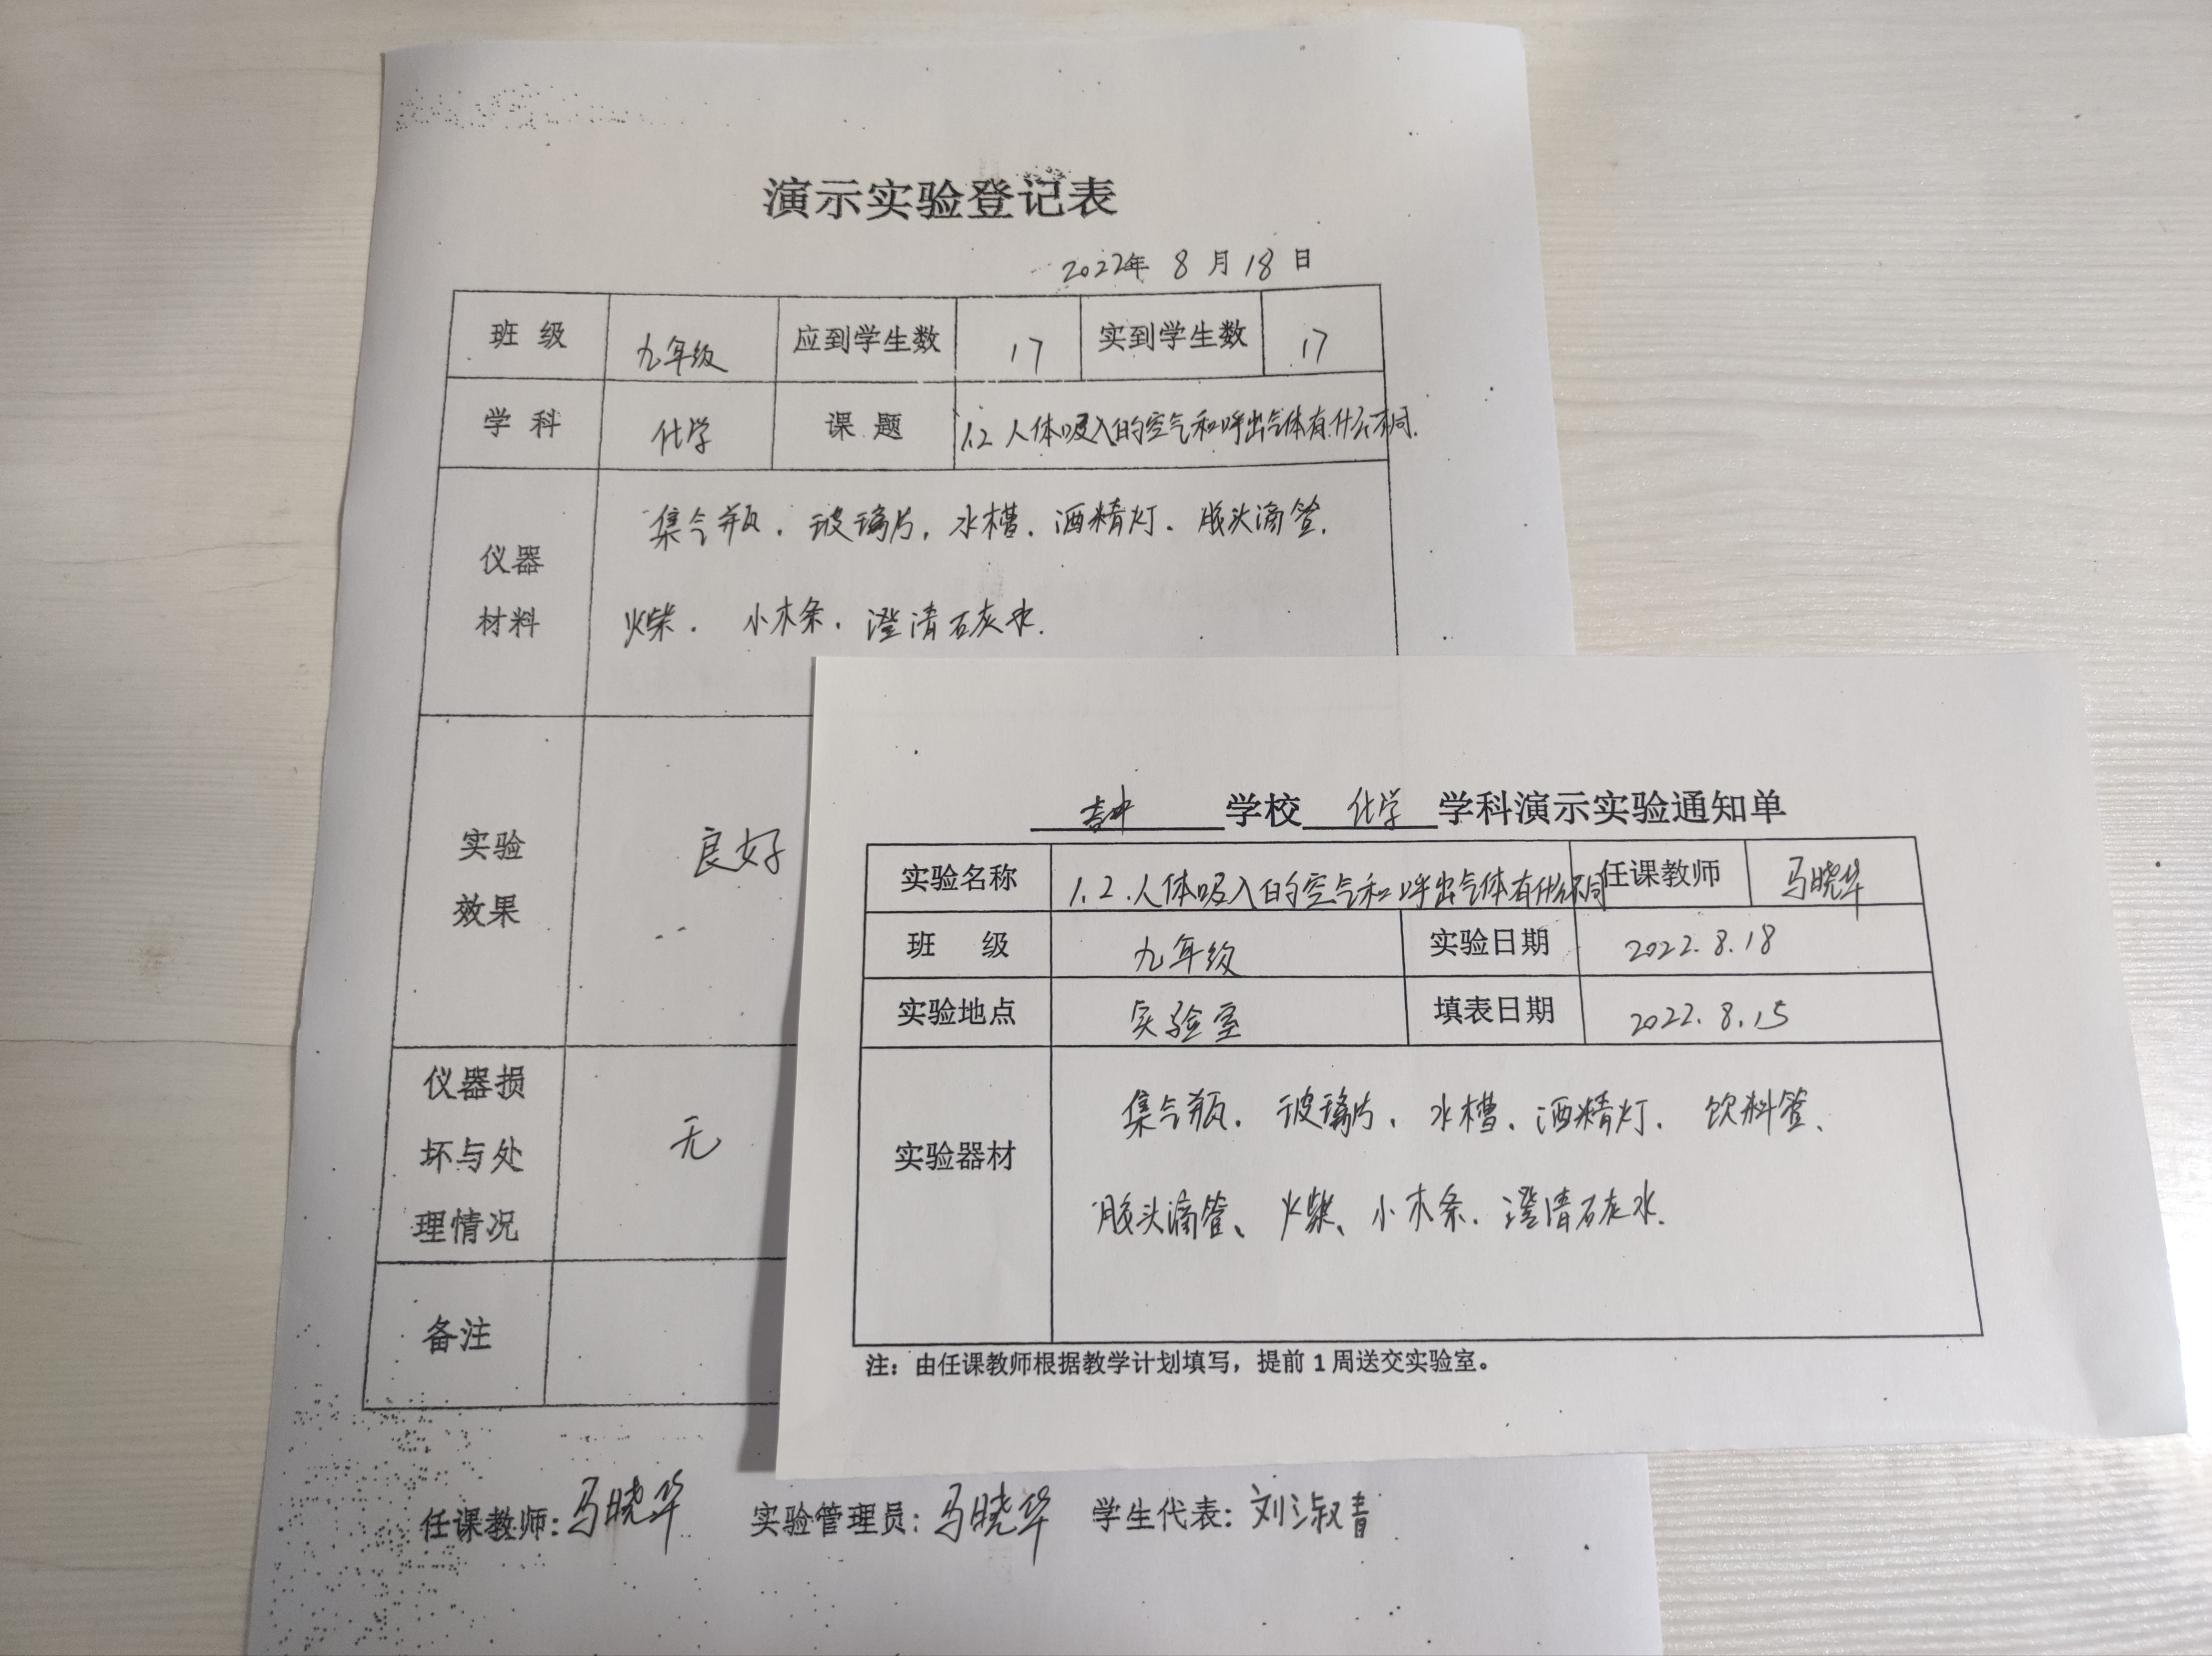 演示实验登记表
2022年 8 月 18 日
班 级 九年级 应到学生数 17 实到学生数 17
学 科 化学 课 题 1.2 人体吸入的空气和呼出气体有什么不同.
仪器
材料
集气瓶. 玻璃片, 水槽. 酒精灯、胶头滴管.
火柴. 小木条. 澄清石灰水.
实验
效果
良好
仪器损
坏与处
理情况
无
备注
任课教师: 马晓华 实验管理员: 马晓华 学生代表: 刘淑青
学校 化学 学科演示实验通知单
实验名称 1.2.人体吸入的空气和呼出气体有什么不同 任课教师 马晓华
班 级 九年级 实验日期 2022.8.18
实验地点 实验室 填表日期 2022.8.15
实验器材
集气瓶. 玻璃片、水槽、酒精灯. 饮料管、
胶头滴管、火柴、小木条. 澄清石灰水.
注：由任课教师根据教学计划填写，提前 1 周送交实验室。